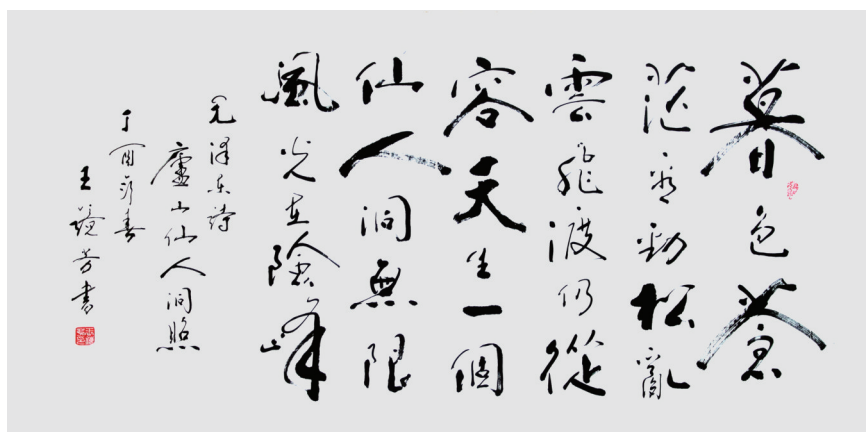 暮色蒼
茫看勁松亂
雲飛渡仍從
容天生一個
仙人洞無限
風光在險峰
毛澤東詩
廬山仙人洞照
丁酉春
王芳書